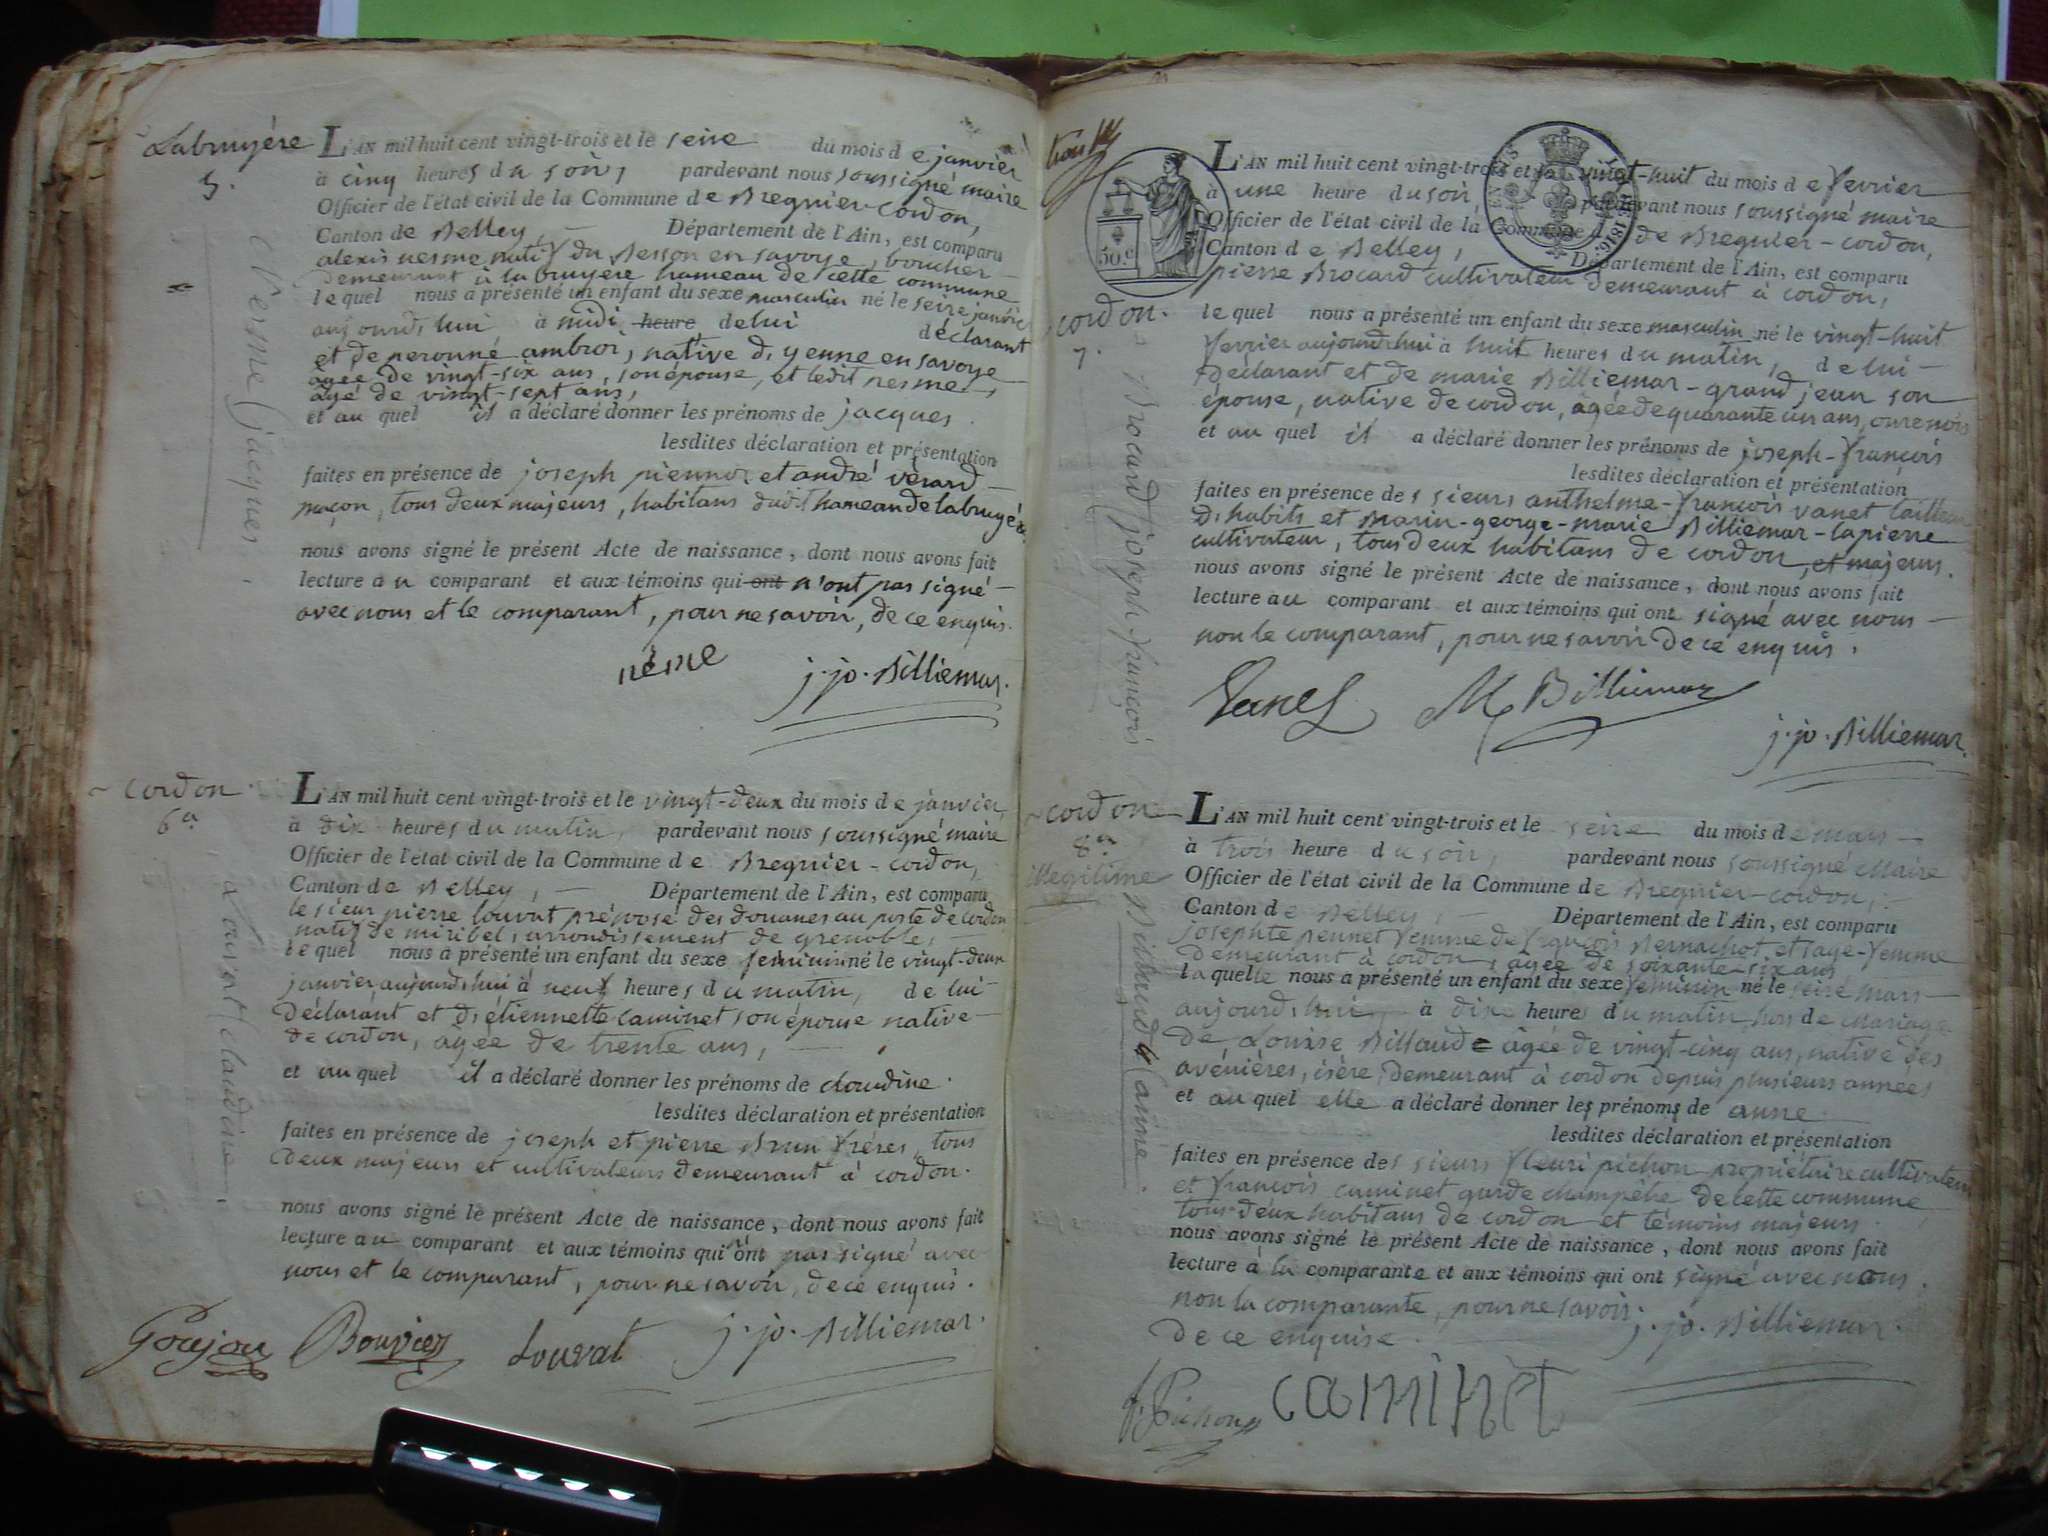 Labruyère
5.
nesme jacques.
L'AN mil huit cent vingt-trois et le seize du mois de janvier
à cinq heures du soir, pardevant nous soussigné maire
Officier de l'état civil de la Commune de Bregnier-cordon,
Canton de Belley, Département de l'Ain, est comparu
alexis nesme natif du en savoye, boucher
demeurant à labruyere hameau de cette commune
lequel nous a présenté un enfant du sexe masculin né le seize janvier
aujourd'hui à midi heure de lui déclarant
et de peronne ambroi, native d'yenne en savoye
agée de vingt-six ans, son épouse, et ledit nesme
agé de vingt-sept ans,
et au quel il a déclaré donner les prénoms de jacques
lesdites déclaration et présentation
faites en présence de joseph et andré vérard
maçon, tous deux majeurs, habitans dudit hameau de labruyére
nous avons signé le présent Acte de naissance, dont nous avons fait
lecture au comparant et aux témoins qui ont n'ont pas signé
avec nous et le comparant, pour ne savoir, de ce enquis.
néme j. jo. Billiemar.
cordon.
6.
Louvat claudine.
L'AN mil huit cent vingt-trois et le vingt-deux du mois de janvier,
à dix heures du matin, pardevant nous soussigné maire
Officier de l'état civil de la Commune de Bregnier-cordon,
Canton de Belley, Département de l'Ain, est comparu
le sieur pierre louvat préposé des douanes au poste de cordon
natif de miribel, arrondissement de grenoble,
lequel nous a présenté un enfant du sexe feminin né le vingt-deux
janvier aujourd'hui à neuf heures du matin, de lui
déclarant et d'étiennette caminet son épouse native
de cordon, agée de trente ans,
et au quel il a déclaré donner les prénoms de claudine.
lesdites déclaration et présentation
faites en présence de joseph et pierre Brun frères, tous
deux majeurs et cultivateurs demeurant à cordon.
nous avons signé le présent Acte de naissance, dont nous avons fait
lecture au comparant et aux témoins qui ont pas signé avec
nous et le comparant, pour ne savoir, de ce enquis.
Goujou Bouvier Louvat j. jo. Billiemar.
50.c
1816.
cordon.
7.
Brocard joseph françois
L'AN mil huit cent vingt-trois et le vingt-huit du mois de fevrier
à une heure du soir, pardevant nous soussigné maire
Officier de l'état civil de la Commune de Bregnier-cordon,
Canton de Belley, Département de l'Ain, est comparu
pierre Brocard cultivateur demeurant à cordon,
lequel nous a présenté un enfant du sexe masculin né le vingt-huit
fevrier aujourd'hui à huit heures du matin, de lui
déclarant et de marie Billiemar-grand jean son
épouse, native de cordon, agée de quarante un ans, mois
et au quel il a déclaré donner les prénoms de joseph-françois
lesdites déclaration et présentation
faites en présence des sieurs anthelme-françois vanet tailleur
d'habits et Marin-george-marie Billiemar-lapierre
cultivateur, tous deux habitans de cordon, et majeurs.
nous avons signé le présent Acte de naissance, dont nous avons fait
lecture au comparant et aux témoins qui ont signé avec nous
non le comparant, pour ne savoir de ce enquis.
Vanet M Billiemar
j. jo. Billiemar.
cordon
8.
illegitime
anne.
L'AN mil huit cent vingt-trois et le seize du mois de mars
à trois heure du soir, pardevant nous soussigné Maire
Officier de l'état civil de la Commune de Bregnier-cordon,
Canton de Belley, Département de l'Ain, est comparu
josephte pennet femme de françois Bernachot et sage-femme
demeurant à cordon, agée de soixante-six ans
laquelle nous a présenté un enfant du sexe feminin né le seize mars
aujourd'hui à dix heures du matin hors de Mariage
de Louise Billaud agée de vingt-cinq ans, native des
avénières, isère, demeurant à cordon depuis plusieurs années
et au quel elle a déclaré donner les prénoms de anne
lesdites déclaration et présentation
faites en présence des sieurs fleuri pichon propriétaire cultivateur
et françois caminet garde champêtre de cette commune
tous deux habitans de cordon et témoins majeurs.
nous avons signé le présent Acte de naissance, dont nous avons fait
lecture à la comparante et aux témoins qui ont signé avec nous.
non la comparante, pour ne savoir.
de ce enquise. j. jo. Billiemar.
f. Pichon caminet